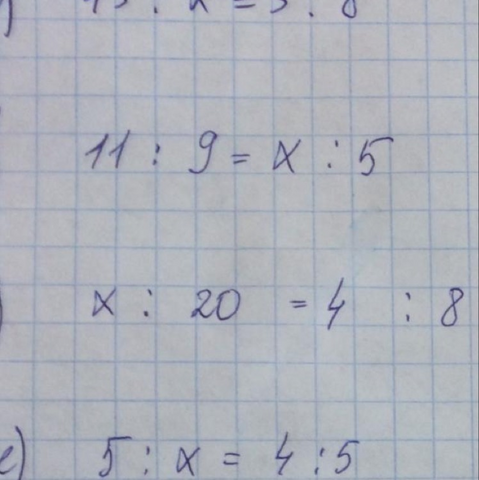 11 : 9 = x : 5
x : 20 = 4 : 8
e) 5 : x = 4 : 5